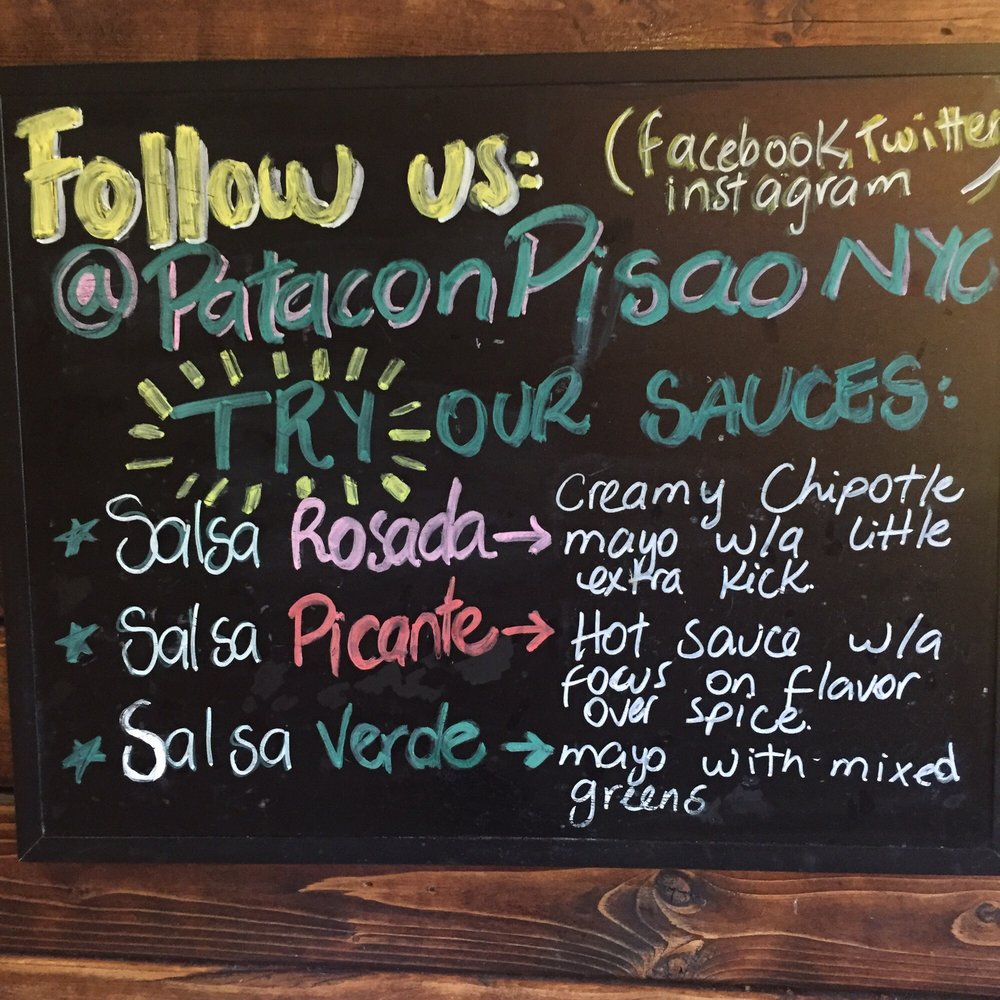 Follow us: (facebook, Twitter
instagram)
@PataconPisaoNYC
TRY OUR SAUCES:
★ Salsa Rosada → Creamy Chipotle
mayo w/a little
extra kick.
★ Salsa Picante → Hot sauce w/a
focus on flavor
over spice.
★ Salsa Verde → mayo with mixed
greens